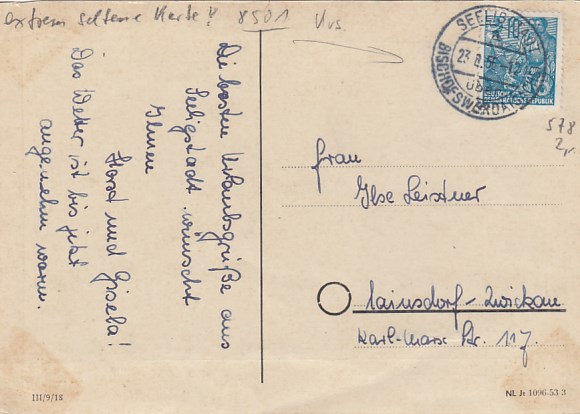 extrem seltene Karte! 8501 Vvs.
Die besten Urlaubsgrüße aus
Seeligstadt wünscht
Ihnen
Horst und Gisela!
Das Wetter ist bis jetzt
angenehm warm.
SEELIGSTADT
a
ÜBER
BISCHOFSWERDA
578
2,-
Frau
Ilse Leistner
Cainsdorf-Zwickau
Karl-Marx Str. 117.
III/9/18
NL Jt 1096-53 3